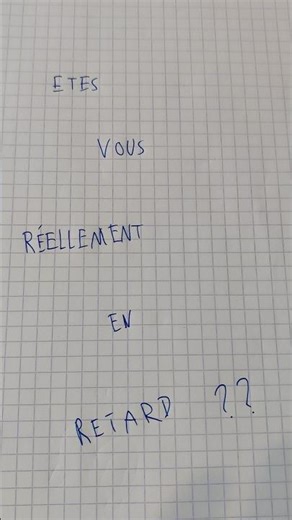 ETES
VOUS
RÉELLEMENT
EN
RETARD ??